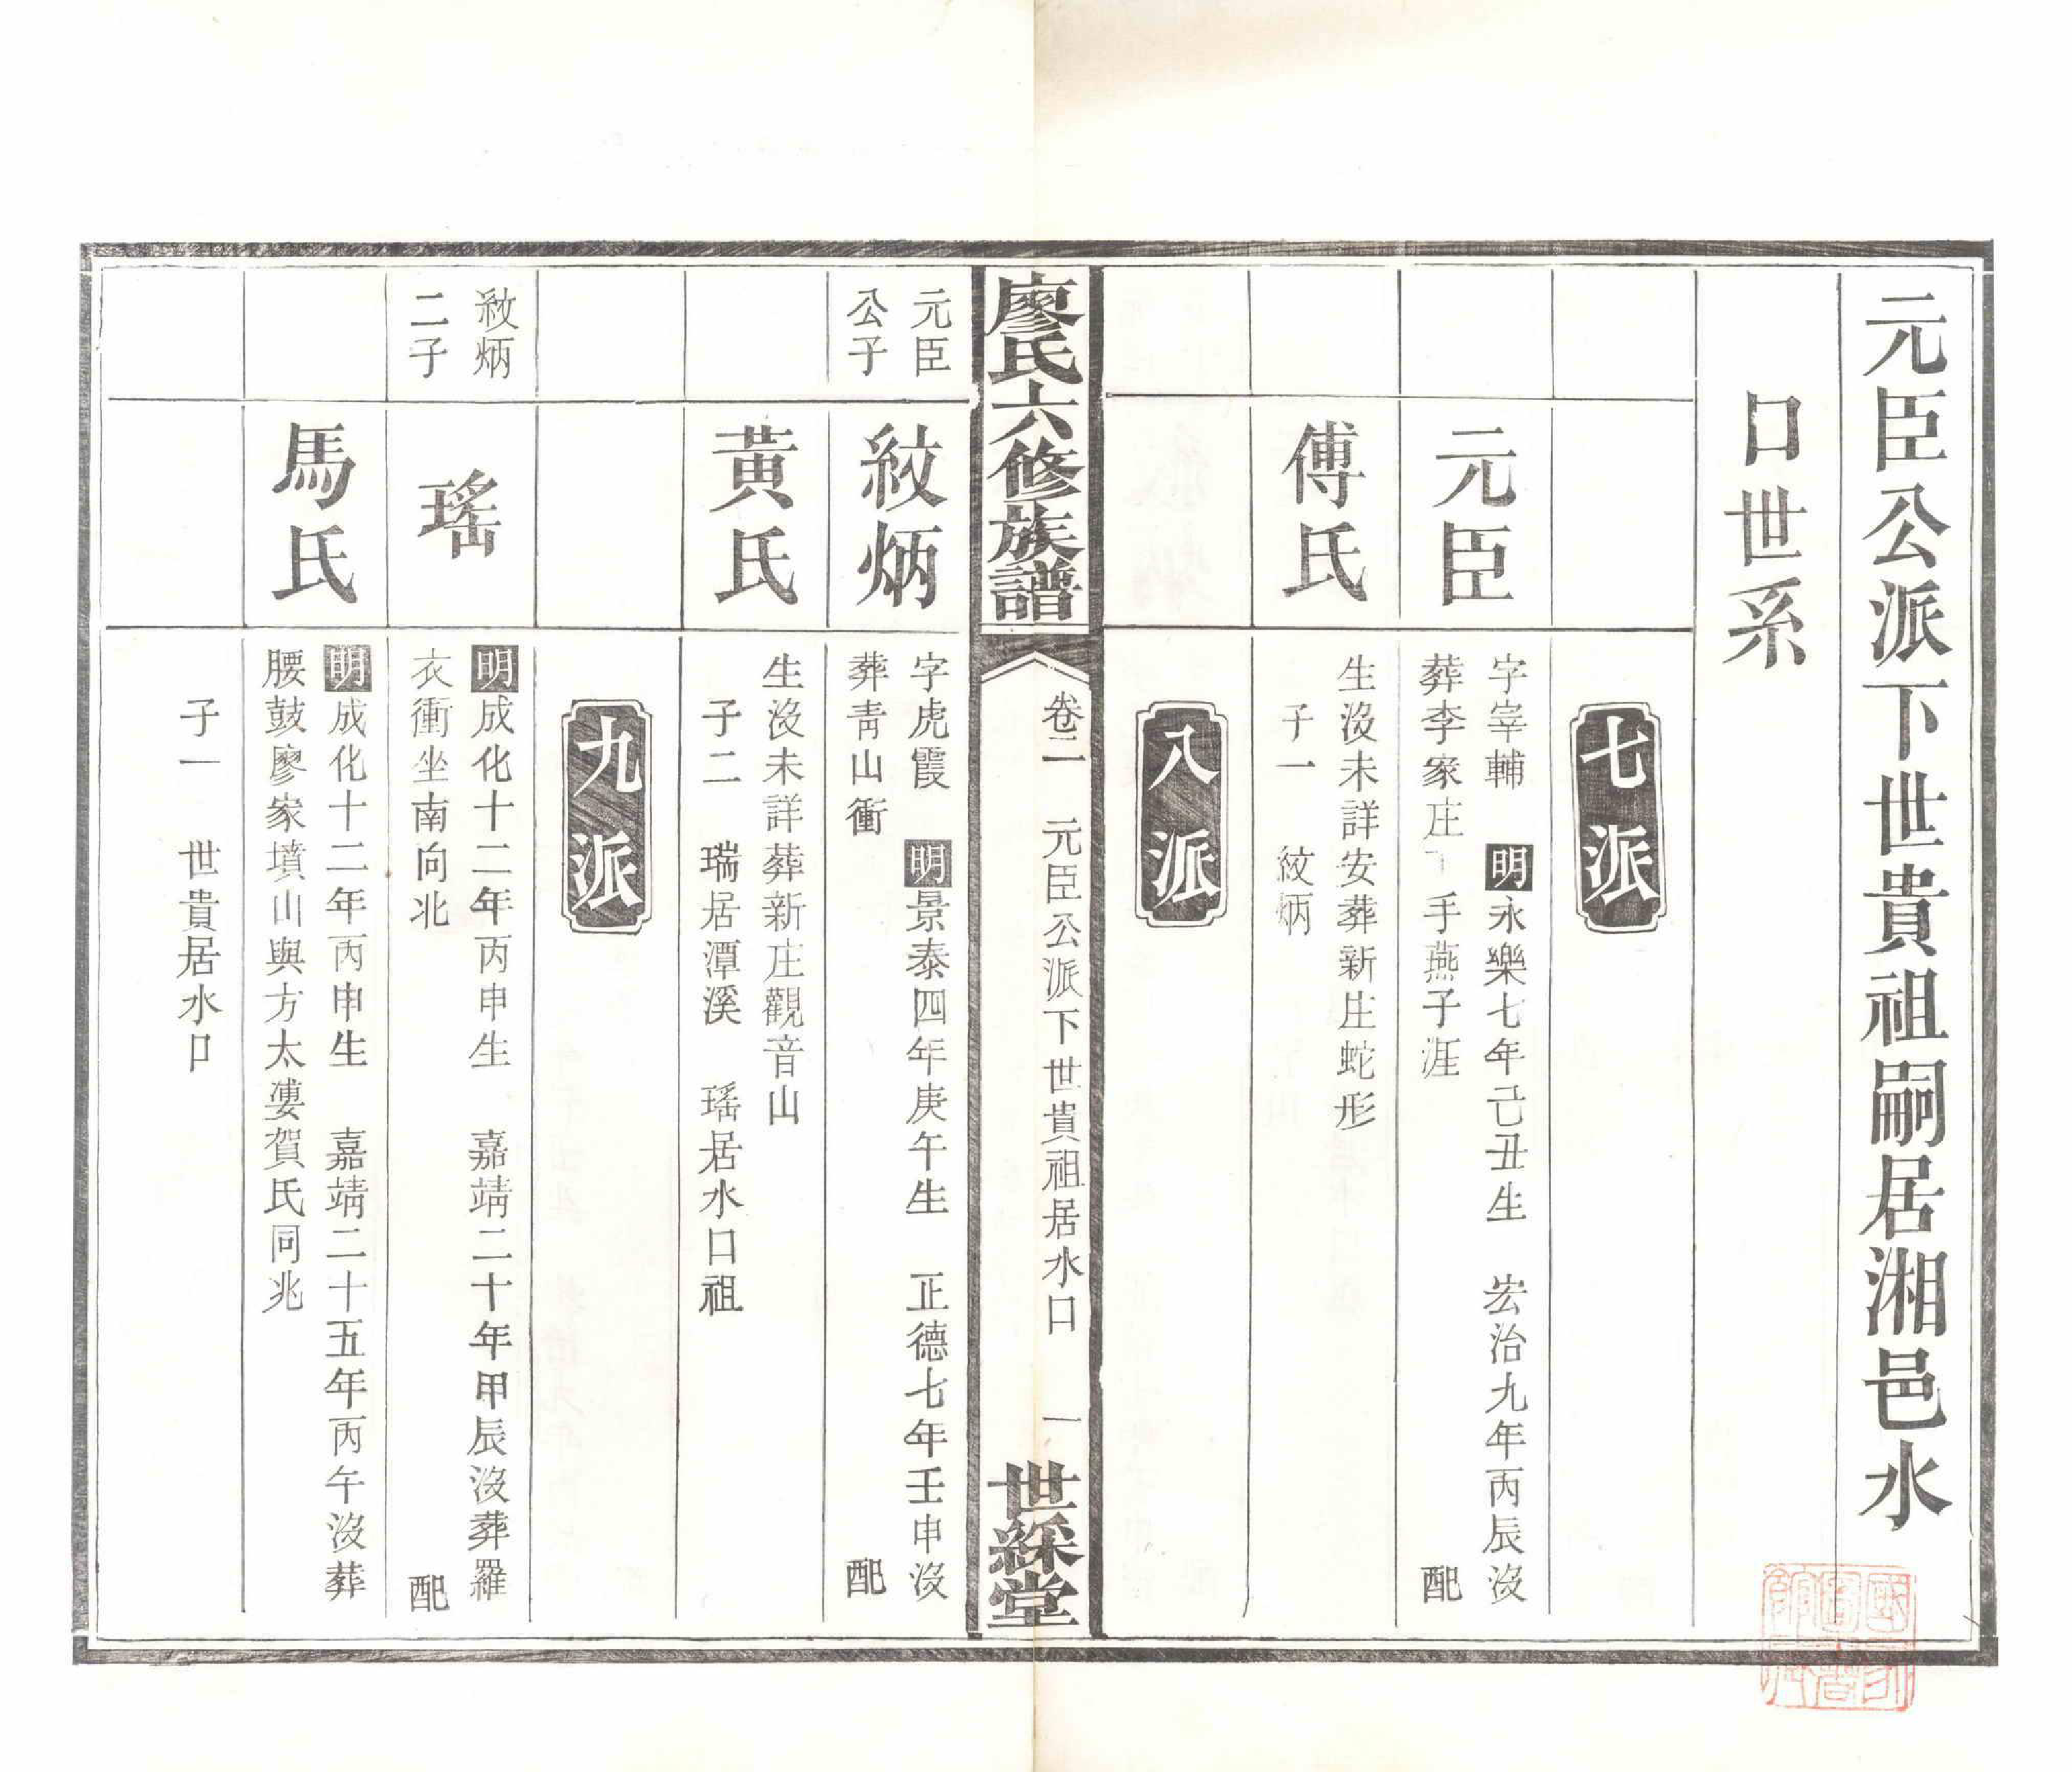 元臣公派下世貴祖嗣居湘邑水
口世系
七派
元臣
字宰輔 明永樂七年己丑生 宏治九年丙辰沒
葬李家庄 手燕子涯 配
傅氏
生沒未詳安葬新庄蛇形
子一 紋炳
八派
廖氏六修族譜
卷二 元臣公派下世貴祖居水口 一
世綵堂
元臣
公子
紋炳
字虎霞 明景泰四年庚午生 正德七年壬申沒
葬青山衝 配
黃氏
生沒未詳葬新庄觀音山
子二 瑞居潭溪 瑤居水口祖
九派
紋炳
二子
瑤
明成化十二年丙申生 嘉靖二十年甲辰沒葬羅
衣衝坐南向北 配
馬氏
明成化十二年丙申生 嘉靖二十五年丙午沒葬
腰鼓廖家墳山與方太婁賀氏同兆
子一 世貴居水口